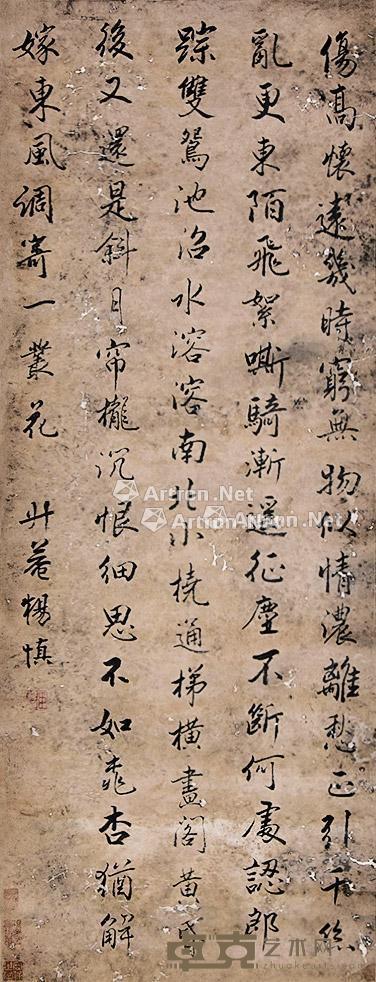 傷高懷遠幾時窮無物似情濃離愁正引千絲
亂更東陌飛絮嘶騎漸遥征塵不斷何處認郎
踪雙鴛池沼水溶溶南北小橈通梯橫畫閣黃昏
後又還是斜月帘櫳沉恨細思不如桃杏猶解
嫁東風調寄一叢花 升菴楊慎
Artron.Net
Artron.Net
艺术网